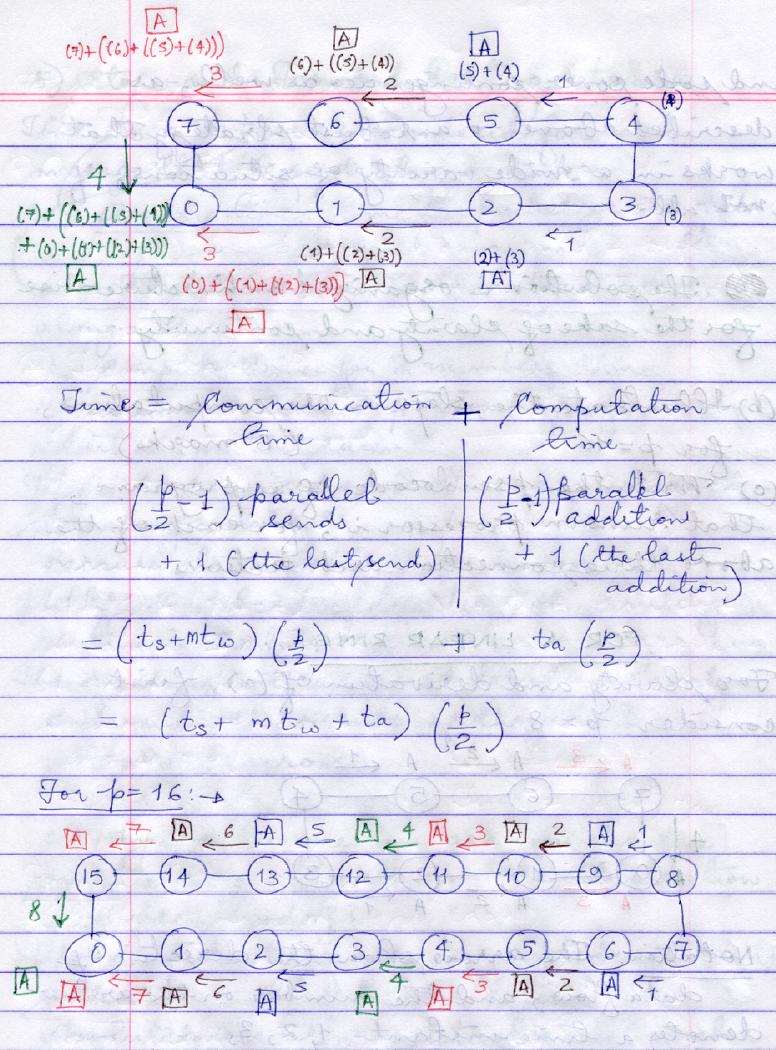 A A A
(7)+((6)+((5)+(4))) (6)+((5)+(4)) (5)+(4)
3 2 1
7 6 5 4
4
0 1 2 3 (3)
(7)+((6)+((5)+(4))
+(0)+((1)+((2)+(3)))
3 2 1
A (0)+((1)+((2)+(3))) (1)+((2)+(3)) (2)+(3)
A A A
Time = Communication time + Computation time
(p/2 - 1) parallel sends (p/2 - 1) parallel addition
+ 1 (the last send) + 1 (the last addition)
= (ts + mtw) (p/2) + ta (p/2)
= (ts + mtw + ta) (p/2)
For p = 16:→
A 7 A 6 A 5 A 4 A 3 A 2 A 1
15 14 13 12 11 10 9 8
8
0 1 2 3 4 5 6 7
A A 7 A 6 A 5 A 4 A 3 A 2 A 1